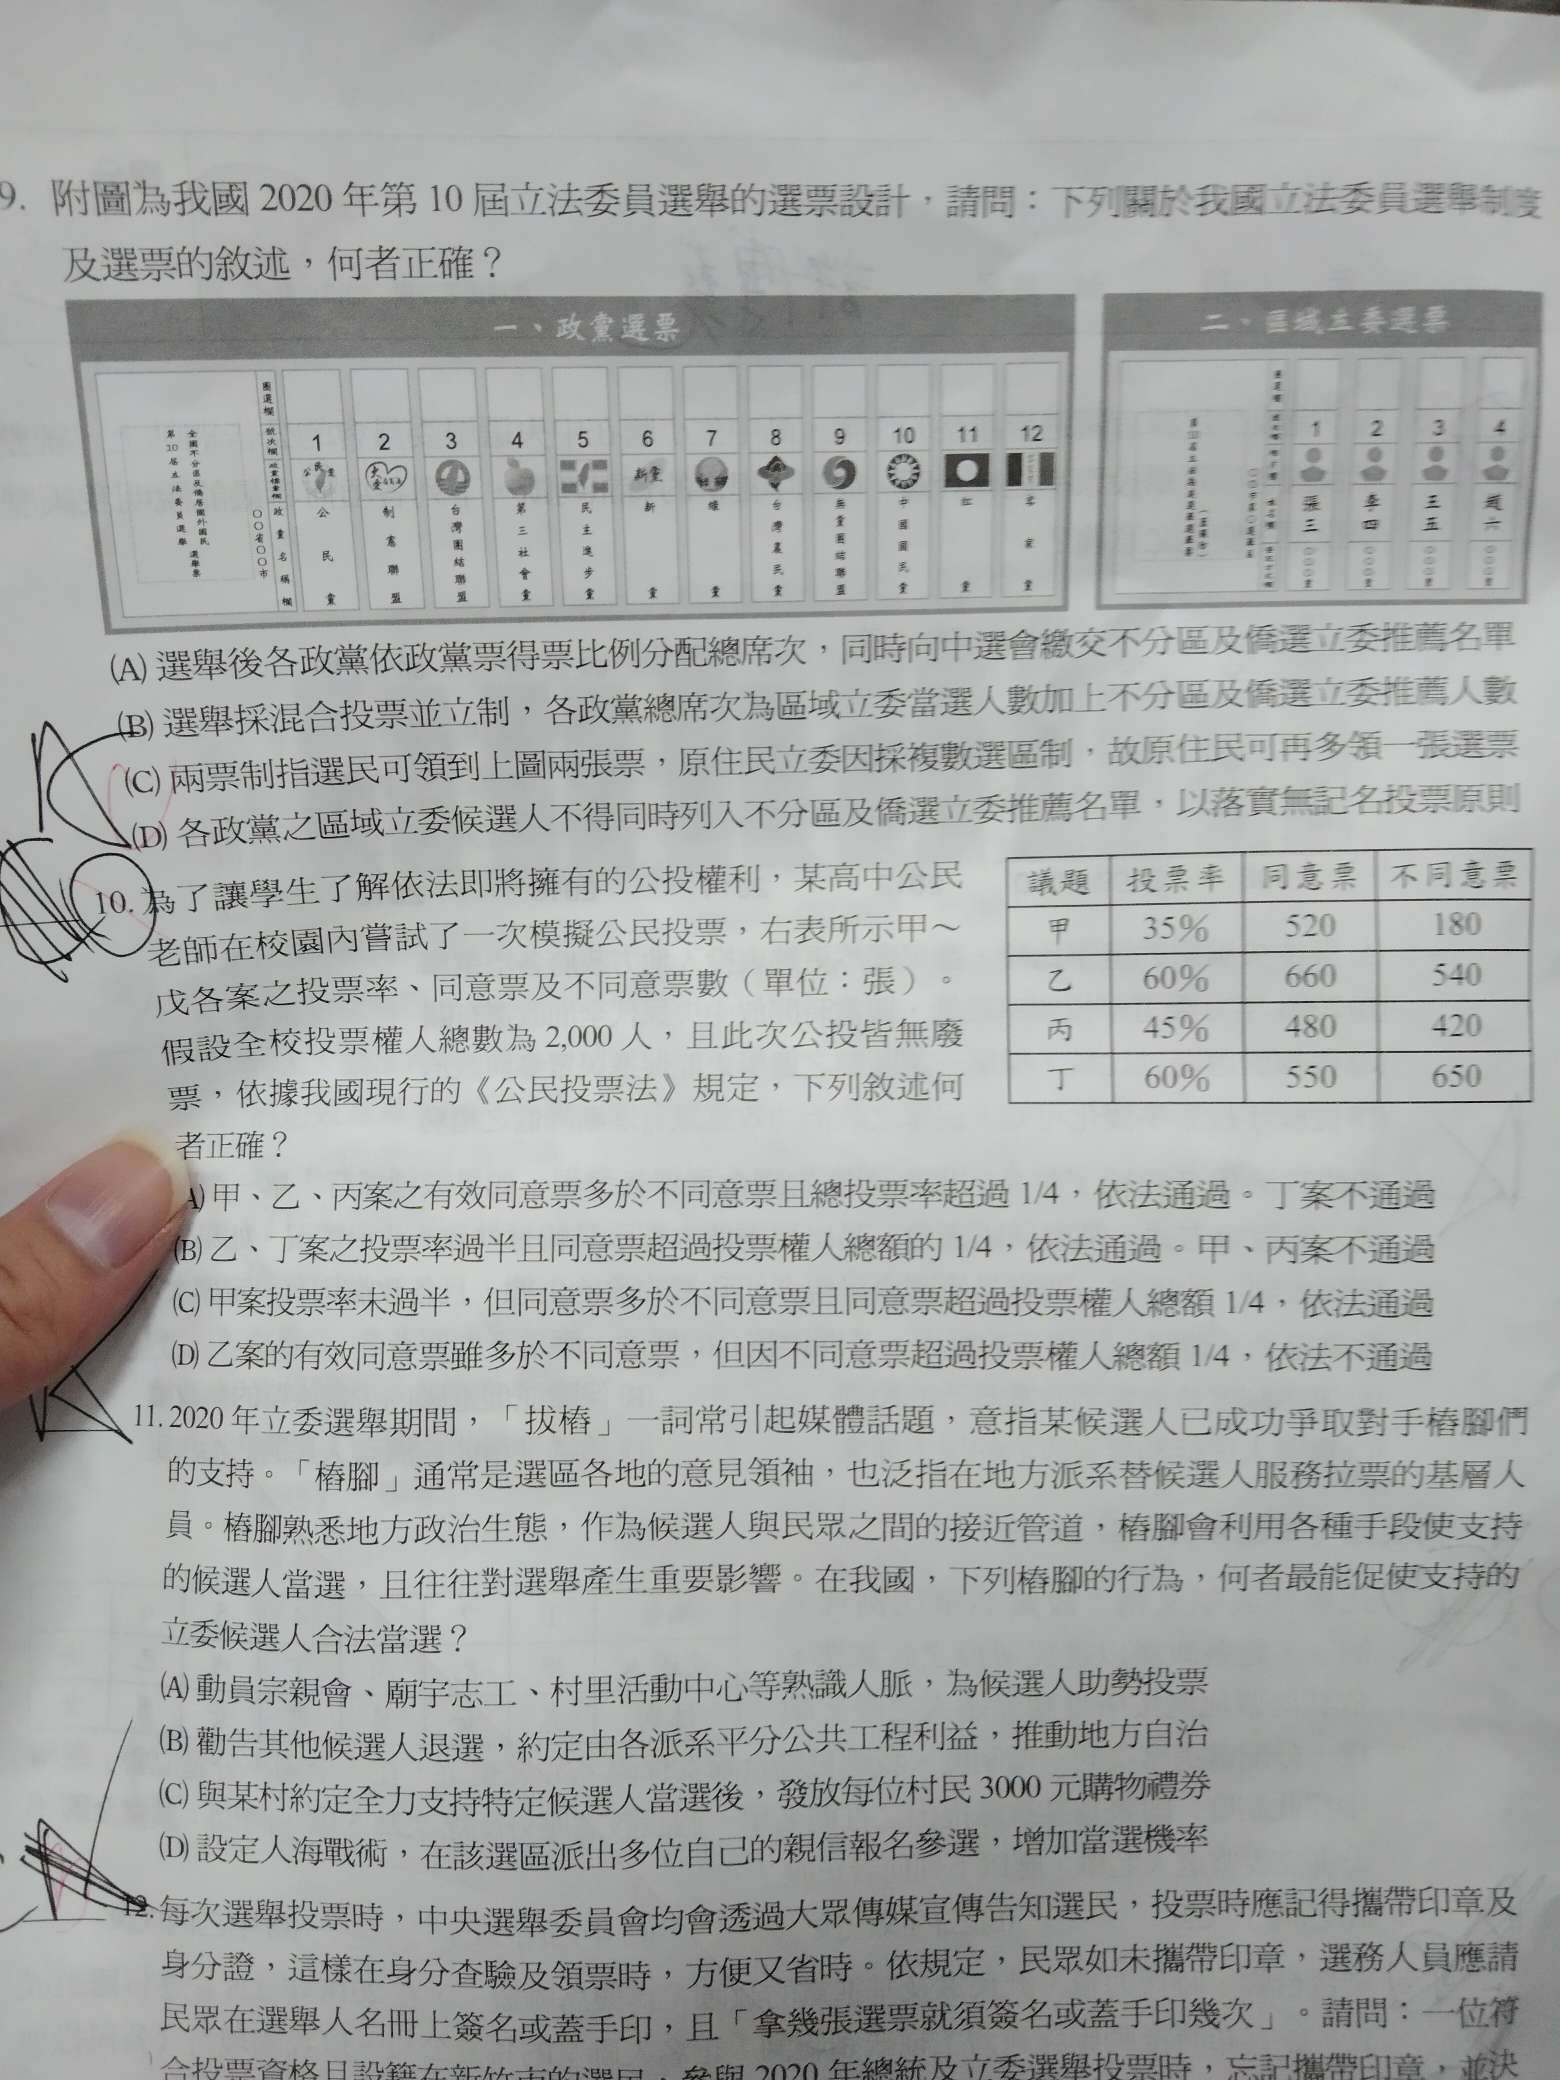 9. 附圖為我國 2020 年第 10 屆立法委員選舉的選票設計，請問：下列關於我國立法委員選舉制度
及選票的敘述，何者正確？
一、政黨選票
二、區域立委選票
圈選欄
號次欄 1 2 3 4 5 6 7 8 9 10 11 12
政黨標章欄
政黨名稱欄 公民黨 制憲聯盟 台灣團結聯盟 第三社會黨 民主進步黨 新黨 綠黨 台灣農民黨 無黨團結聯盟 中國國民黨 紅黨 客家黨
第10屆立法委員選舉
全國不分區及僑居國外國民 選舉票
〇〇省〇〇市
1 2 3 4
張三 李四 王五 趙六
〇〇〇黨 〇〇〇黨 〇〇〇黨 〇〇〇黨
(A) 選舉後各政黨依政黨票得票比例分配總席次，同時向中選會繳交不分區及僑選立委推薦名單
(B) 選舉採混合投票並立制，各政黨總席次為區域立委當選人數加上不分區及僑選立委推薦人數
(C) 兩票制指選民可領到上圖兩張票，原住民立委因採複數選區制，故原住民可再多領一張選票
(D) 各政黨之區域立委候選人不得同時列入不分區及僑選立委推薦名單，以落實無記名投票原則
10. 為了讓學生了解依法即將擁有的公投權利，某高中公民
老師在校園內嘗試了一次模擬公民投票，右表所示甲～
戊各案之投票率、同意票及不同意票數（單位：張）。
假設全校投票權人總數為 2,000 人，且此次公投皆無廢
票，依據我國現行的《公民投票法》規定，下列敘述何
者正確？
議題 投票率 同意票 不同意票
甲 35% 520 180
乙 60% 660 540
丙 45% 480 420
丁 60% 550 650
A) 甲、乙、丙案之有效同意票多於不同意票且總投票率超過 1/4，依法通過。丁案不通過
(B) 乙、丁案之投票率過半且同意票超過投票權人總額的 1/4，依法通過。甲、丙案不通過
(C) 甲案投票率未過半，但同意票多於不同意票且同意票超過投票權人總額 1/4，依法通過
(D) 乙案的有效同意票雖多於不同意票，但因不同意票超過投票權人總額 1/4，依法不通過
11. 2020 年立委選舉期間，「拔樁」一詞常引起媒體話題，意指某候選人已成功爭取對手樁腳們
的支持。「樁腳」通常是選區各地的意見領袖，也泛指在地方派系替候選人服務拉票的基層人
員。樁腳熟悉地方政治生態，作為候選人與民眾之間的接近管道，樁腳會利用各種手段使支持
的候選人當選，且往往對選舉產生重要影響。在我國，下列樁腳的行為，何者最能促使支持的
立委候選人合法當選？
(A) 動員宗親會、廟宇志工、村里活動中心等熟識人脈，為候選人助勢投票
(B) 勸告其他候選人退選，約定由各派系平分公共工程利益，推動地方自治
(C) 與某村約定全力支持特定候選人當選後，發放每位村民 3000 元購物禮券
(D) 設定人海戰術，在該選區派出多位自己的親信報名參選，增加當選機率
12. 每次選舉投票時，中央選舉委員會均會透過大眾傳媒宣傳告知選民，投票時應記得攜帶印章及
身分證，這樣在身分查驗及領票時，方便又省時。依規定，民眾如未攜帶印章，選務人員應請
民眾在選舉人名冊上簽名或蓋手印，且「拿幾張選票就須簽名或蓋手印幾次」。請問：一位符
合投票資格且設籍在新竹市的選民，參與 2020 年總統及立委選舉投票時，忘記攜帶印章，並決